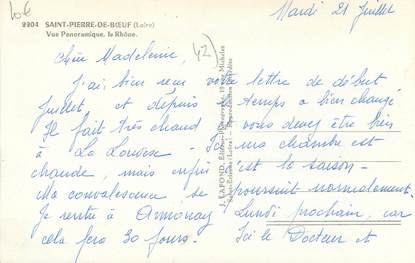 10€
2204 SAINT-PIERRE-DE-BŒUF (Loire)
Vue Panoramique, le Rhône.
42)
Mardi 21 Juillet
Chère Madeleine,
J'ai bien reçu votre lettre de début
Juillet et depuis temps a bien changé
Il fait très chaud vous devez être bien
à La Louvesc - Ici ma chambre est
chaude, mais enfin c'est la saison -
Ma convalescence se poursuit normalement.
Je rentre à Annonay Lundi prochain, car
cela fera 30 jours. Ici le Docteur et
J. LAFOND, Édit.